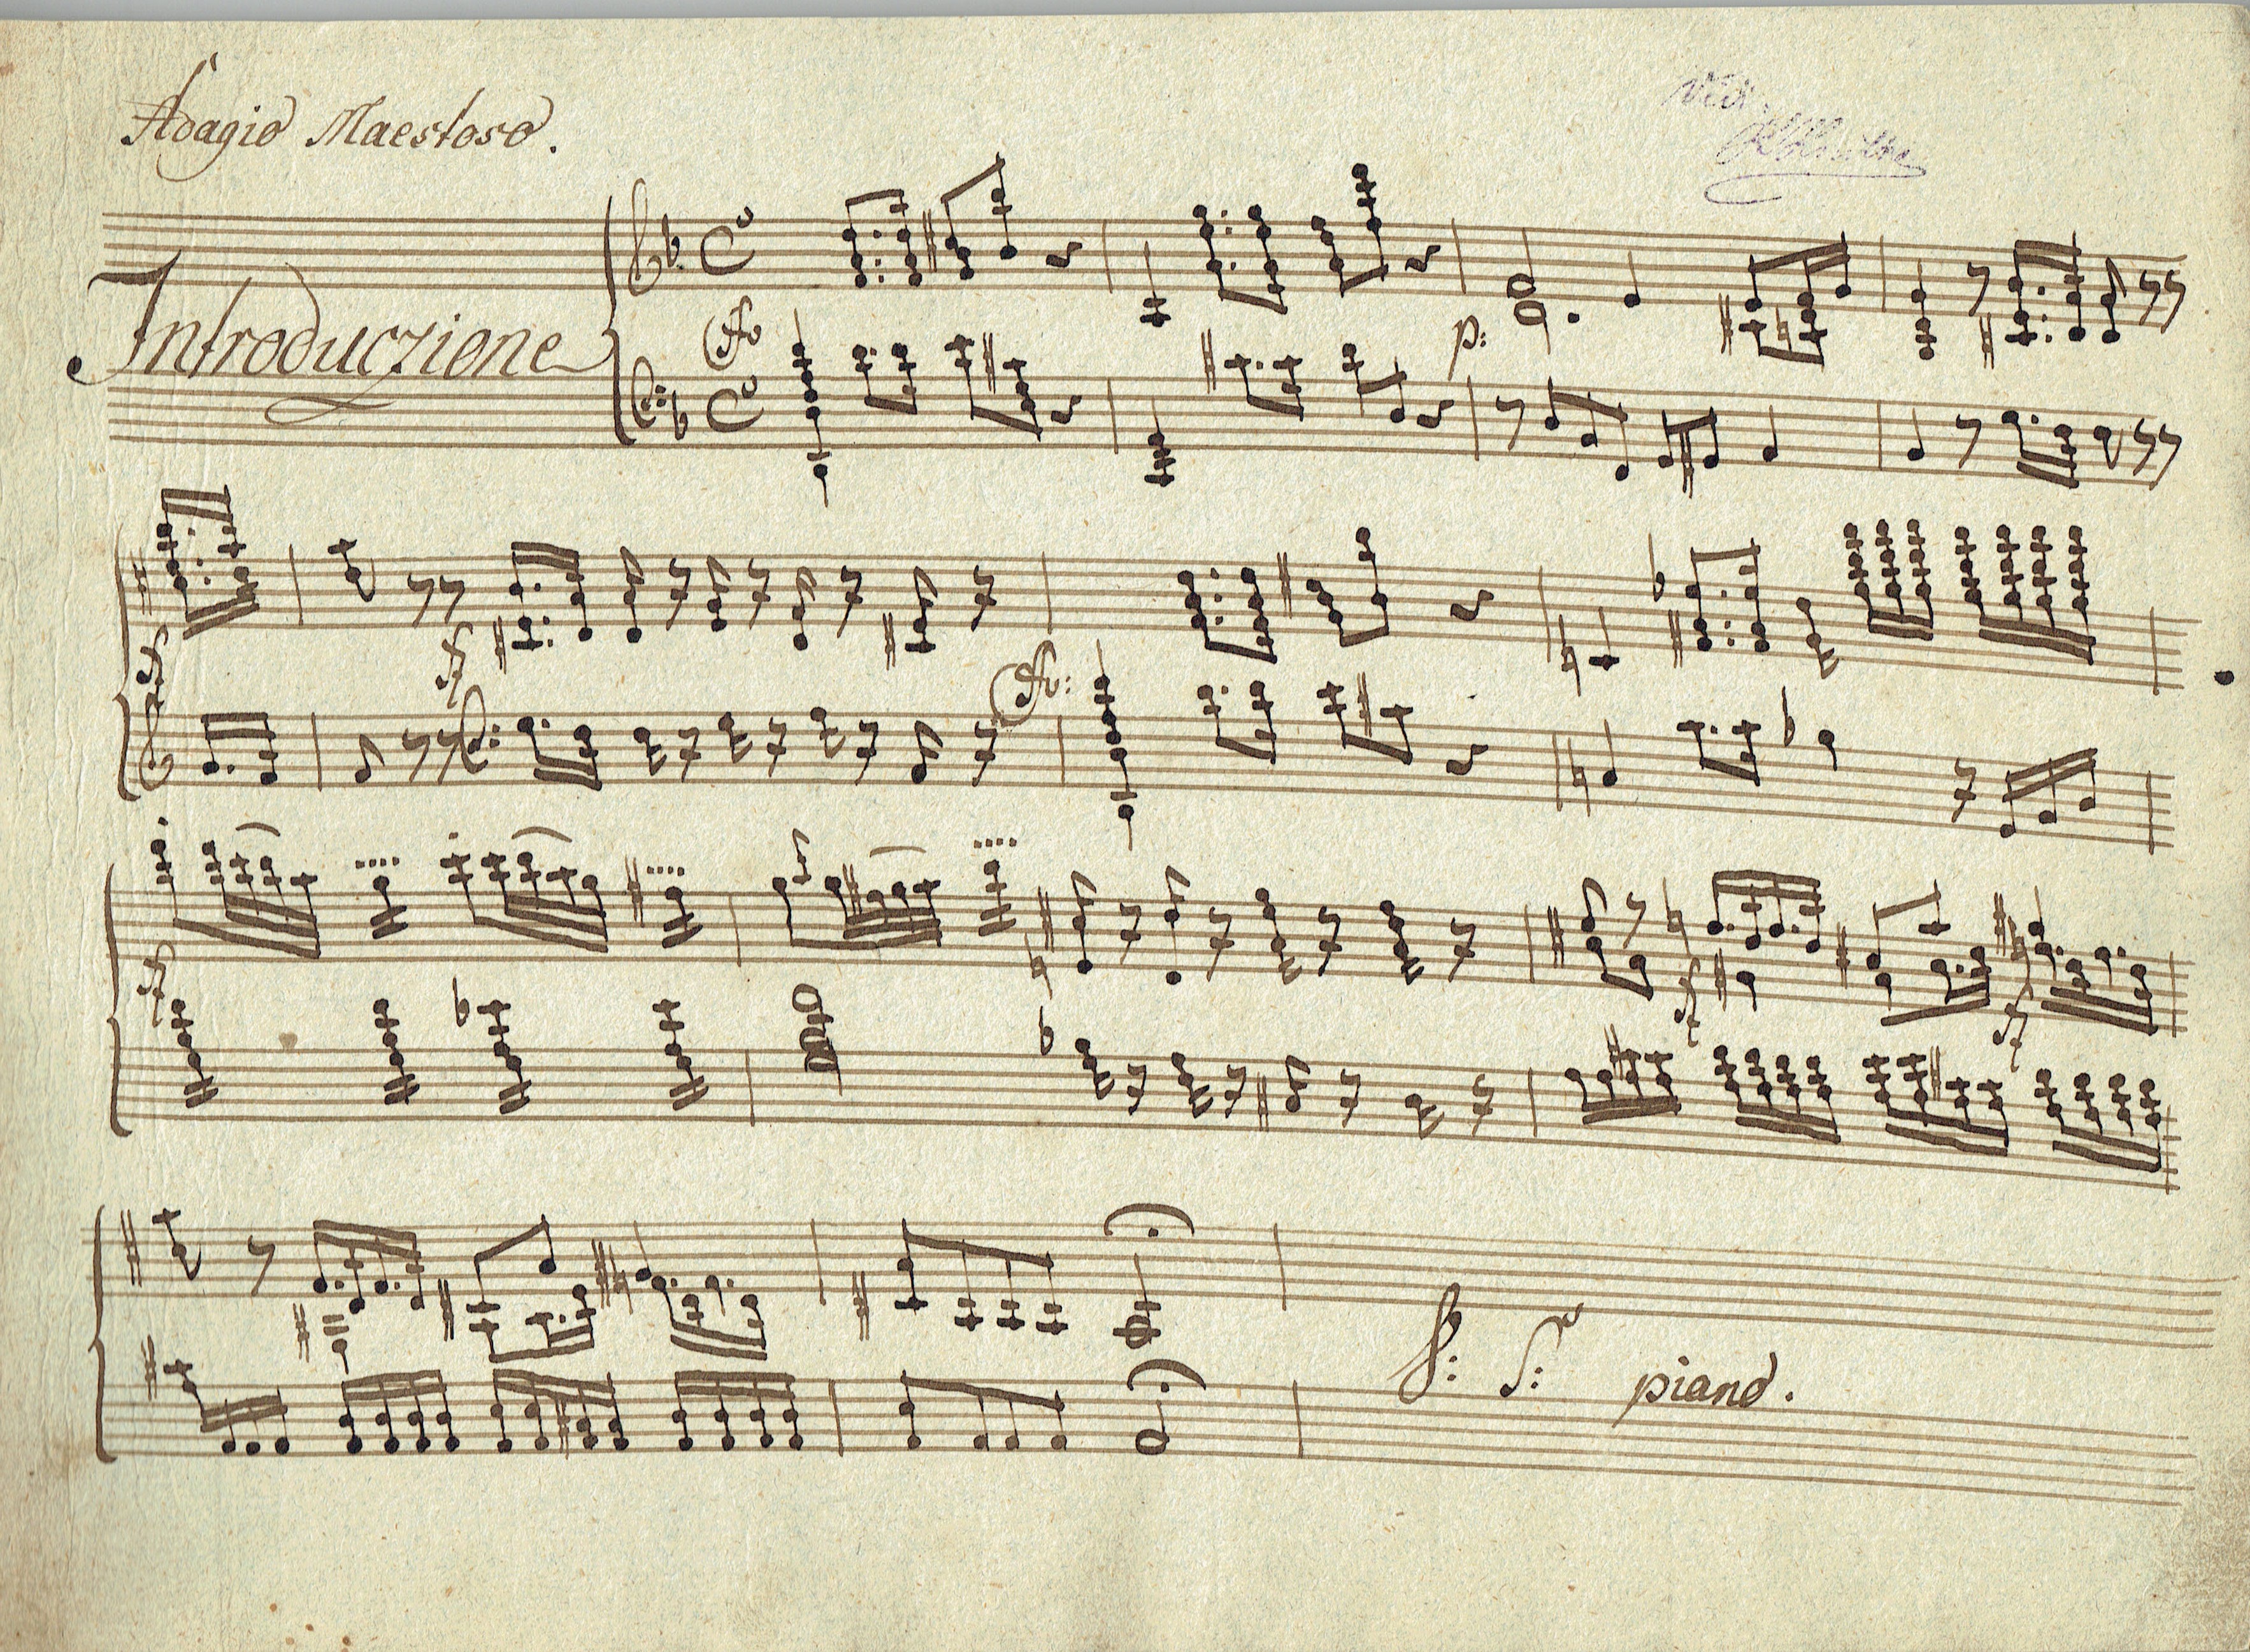 Adagio Maestoso.
Vidi
Introduczione
p:
V: S: piano.